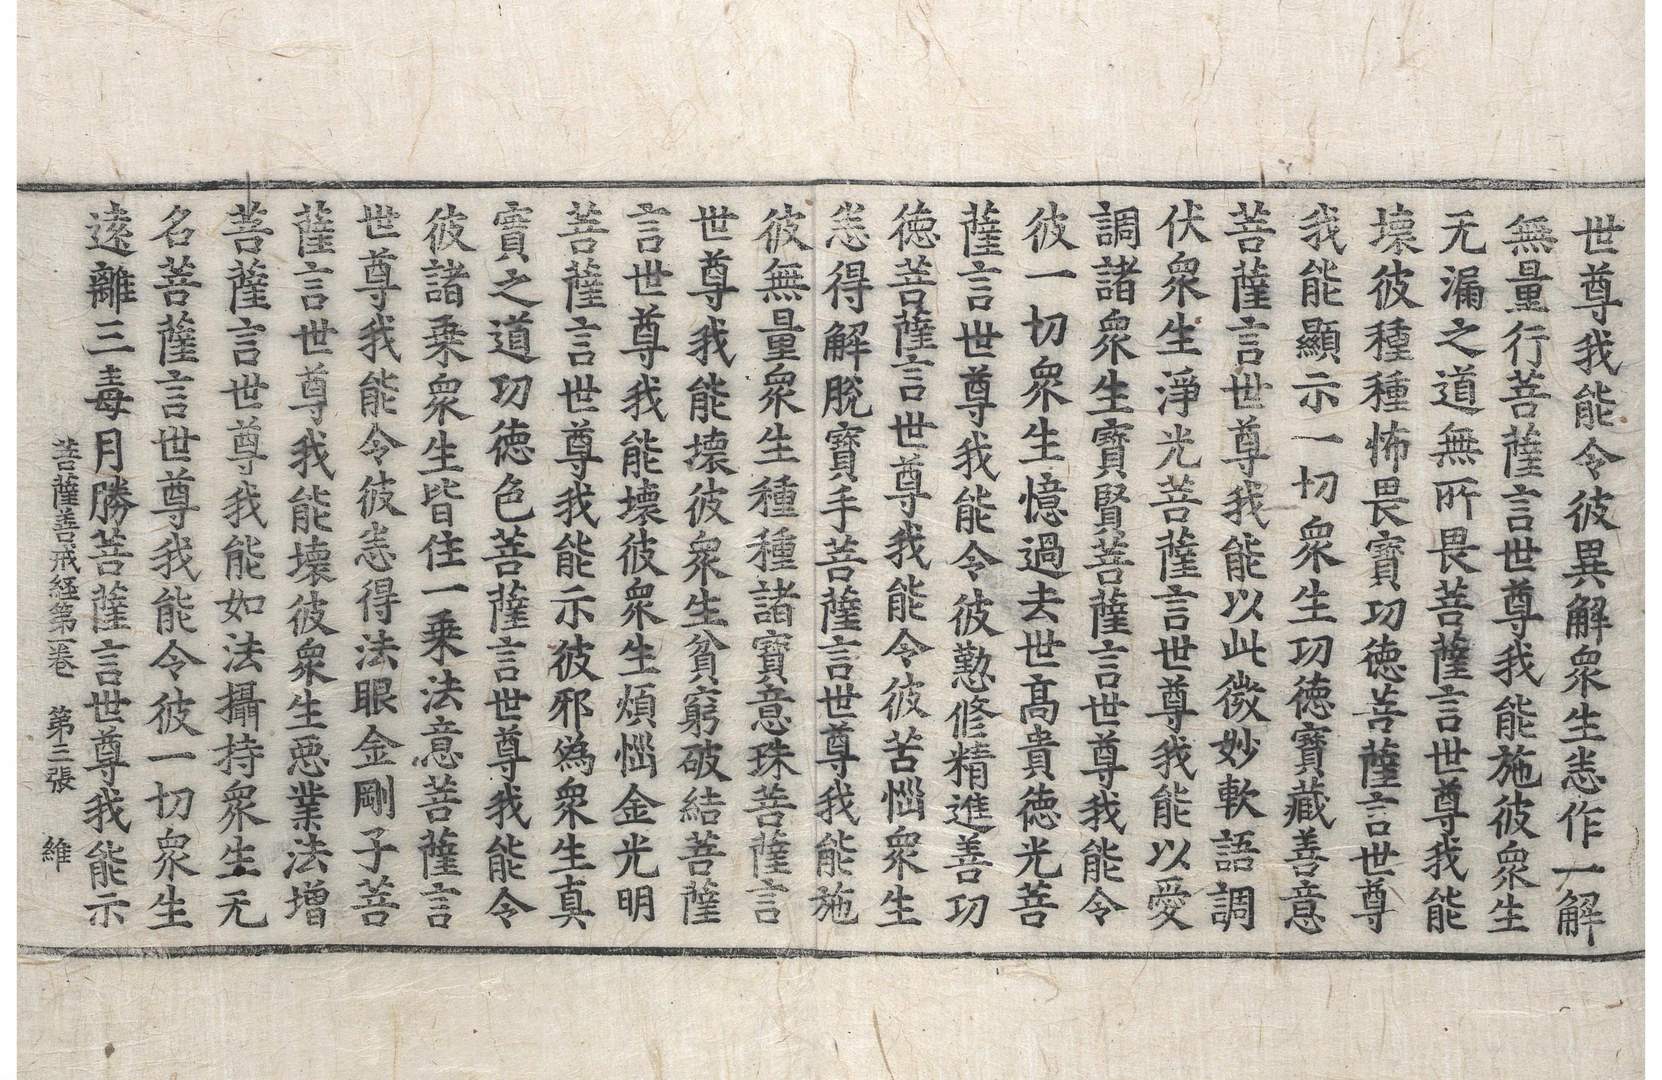 世尊我能令彼異解衆生悉作一解
無量行菩薩言世尊我能施彼衆生
无漏之道無所畏菩薩言世尊我能
壞彼種種怖畏寳功徳菩薩言世尊
我能顯示一切衆生功徳寳藏善意
菩薩言世尊我能以此微妙軟語調
伏衆生淨光菩薩言世尊我能以愛
調諸衆生寳賢菩薩言世尊我能令
彼一切衆生憶過去世髙貴徳光菩
薩言世尊我能令彼懃修精進善功
徳菩薩言世尊我能令彼苦惱衆生
悉得解脫寳手菩薩言世尊我能施
彼無量衆生種種諸寳意珠菩薩言
世尊我能壞彼衆生貧窮破結菩薩
言世尊我能壞彼衆生煩惱金光明
菩薩言世尊我能示彼邪為衆生真
寳之道功徳色菩薩言世尊我能令
彼諸乗衆生皆住一乗法意菩薩言
世尊我能令彼悉得法眼金剛子菩
薩言世尊我能壞彼衆生惡業法增
菩薩言世尊我能如法攝持衆生无
名菩薩言世尊我能令彼一切衆生
逺離三毒月勝菩薩言世尊我能示
菩薩善戒経第一巻 第三張 維